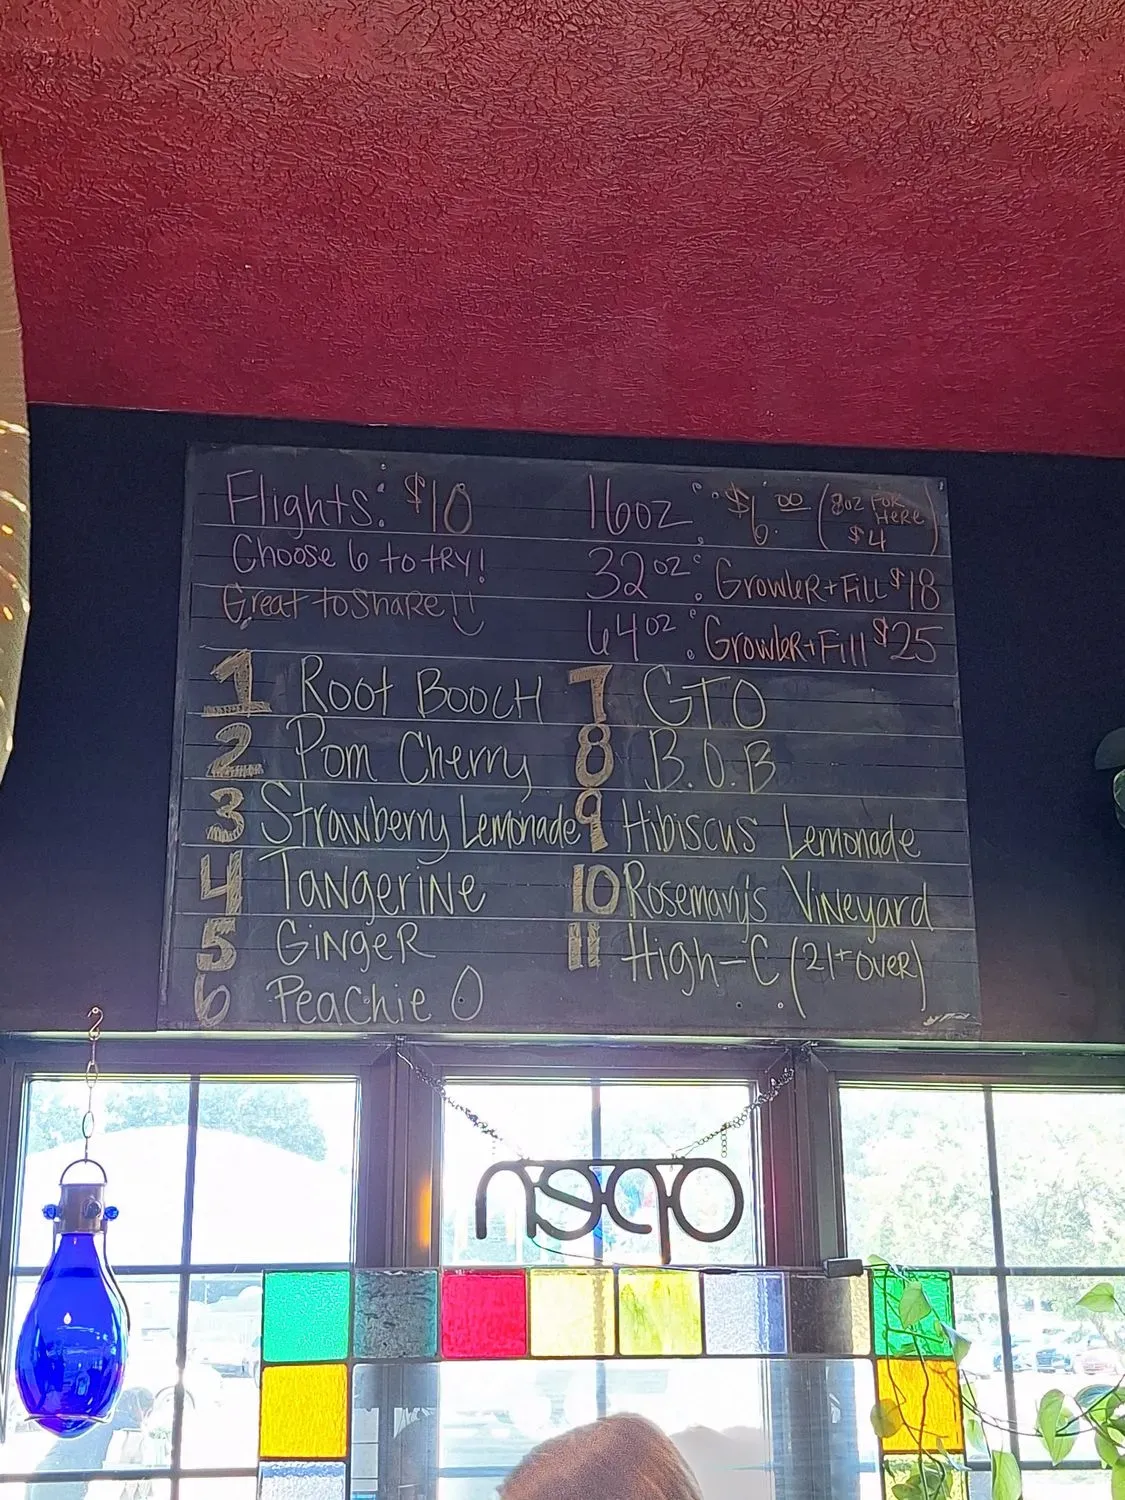 Flights: $10
Choose 6 to try!
Great to share!!
16oz: $6.00 (8oz FOR HERE $4)
32oz: Growler + Fill $18
64oz: Growler + Fill $25
1 Root Booch
2 Pom Cherry
3 Strawberry Lemonade
4 Tangerine
5 Ginger
6 Peachie O
7 GTO
8 B.O.B
9 Hibiscus Lemonade
10 Rosemary's Vineyard
11 High-C (21+over)
open